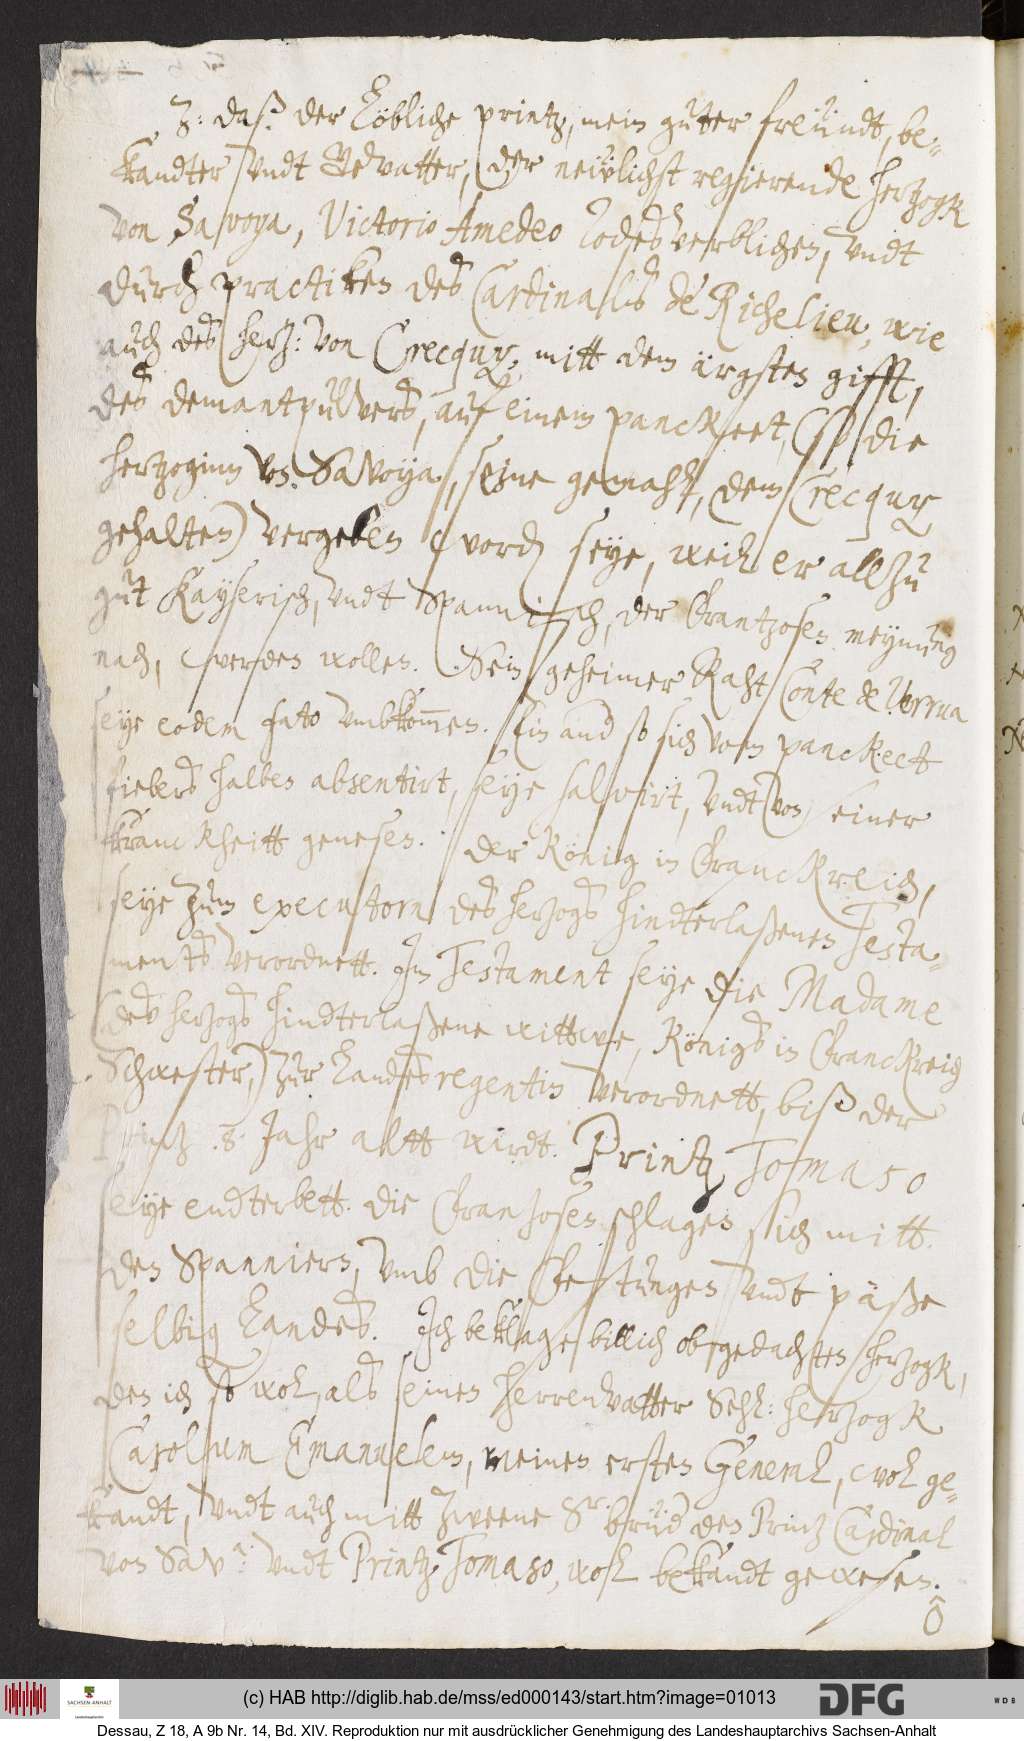 3: daß der löbliche printz, mein guter freündt, be-
kandter undt Gevatter, der neẅlichst regierende hertzogk
von Savoya, Victorio Amedeo Todes verblichen, undt
durch practiken des Cardinalis de Richelieu, wie
auch des hertz: von Crecquy, mitt dem ärgsten gifft,
des demantpulvers, auf einem panckeet, (so die
hertzoginn von Savoya, seine gemahl, dem Crecquy
gehalten) vergeben worden seye, weil er allzu
gut Kayserisch, undt Spannisch, der Frantzosen meynung
nach, werden wollen. Sein geheimer Raht Conte de Verrua
seye eodem fato umbkommen. Ein and so sich vom panckeet
fiebers halben absentirt, seye salvirt, undt von seiner
kranckheitt genesen. der König in Franckreich,
seye zum executorn des herzogs hindterlaßenen Testa-
ments verordnett. Im Testament seye die Madame
(des herzogs hindterlaßene wittwe, Königs in Franckreich
Schwester,) zur Landesregentin verordnett, biß der
Printz .8. Jahr altt wirdt. Printz Tomaso
seye endterbett. die Franzosen schlagen sich mitt
den Spanniern, umb die Festungen undt päße
selbig Landes. Ich beklage billich obgedachten herzogk,
den ich so wol, als seinen herrenvatter Sehl: herzogk
Carolum Emanuelem, meinen ersten General, wol ge-
kandt, undt auch mitt zweene Sr. brüd den Prinz Cardinal
von Sava: undt Printz Tomaso, wohl bekandt gewesen.
ô
(c) HAB http://diglib.hab.de/mss/ed000143/start.htm?image=01013
SACHSEN-ANHALT
DFG
WDB
Dessau, Z 18, A 9b Nr. 14, Bd. XIV. Reproduktion nur mit ausdrücklicher Genehmigung des Landeshauptarchivs Sachsen-Anhalt